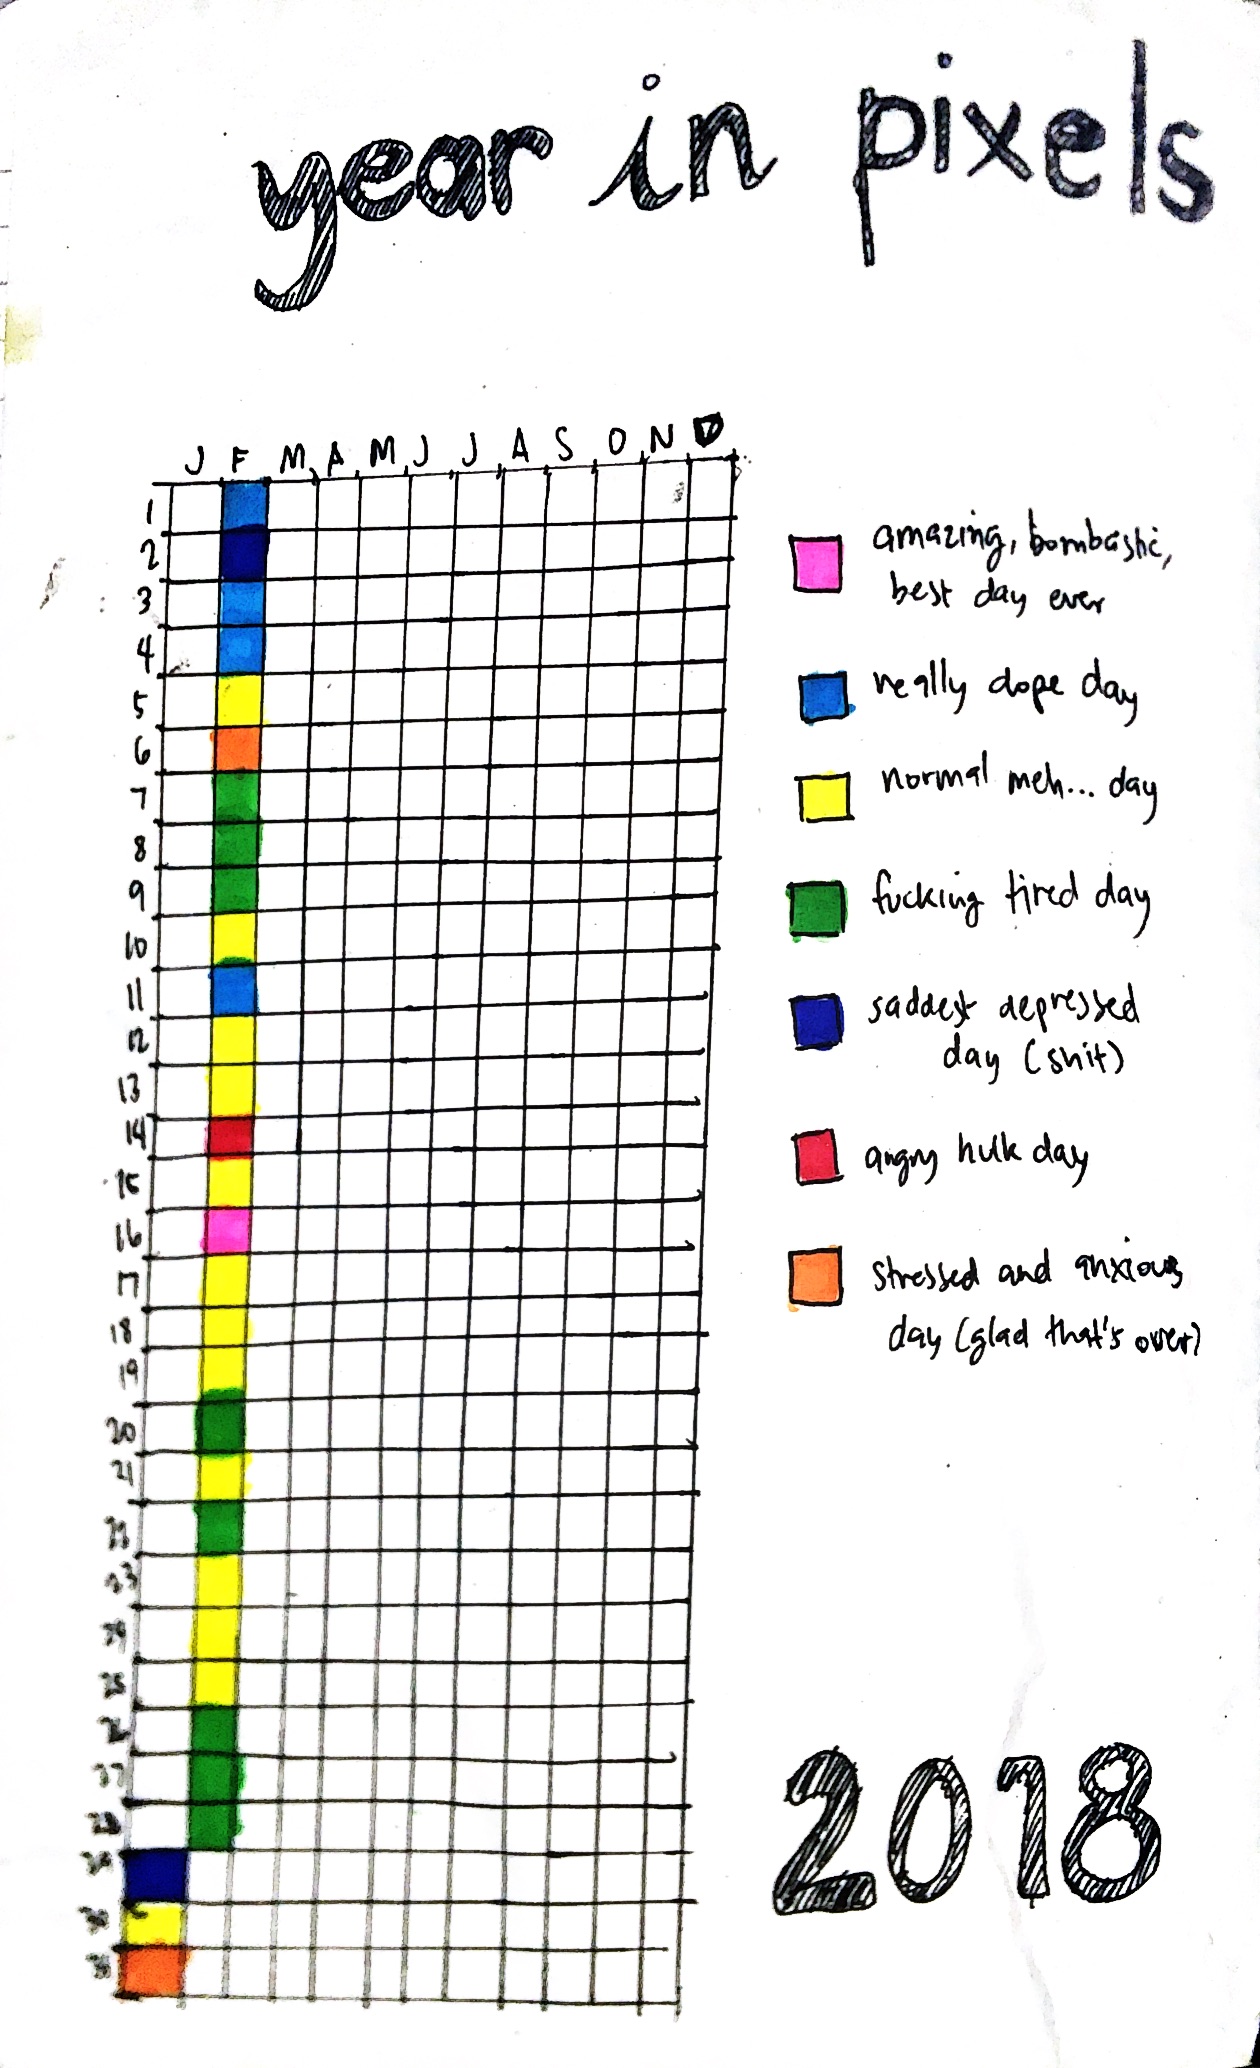 year in pixels
J F M A M J J A S O N D
1
2
3
4
5
6
7
8
9
10
11
12
13
14
15
16
17
18
19
20
21
22
23
24
25
26
27
28
29
30
31
amazing, bombastic,
best day ever
really dope day
normal meh... day
fucking tired day
saddest depressed
day (shit)
angry hulk day
stressed and anxious
day (glad that's over)
2018